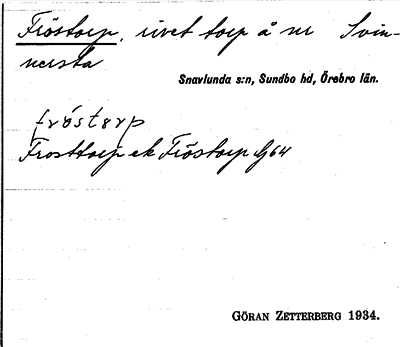 Fröstorp, rivet torp å nr Svin-
nersta
Snavlunda s:n, Sundbo hd, Örebro län.
fröstɘrp
Frosttorp ek Fröstorp Gj64
GÖRAN ZETTERBERG 1934.